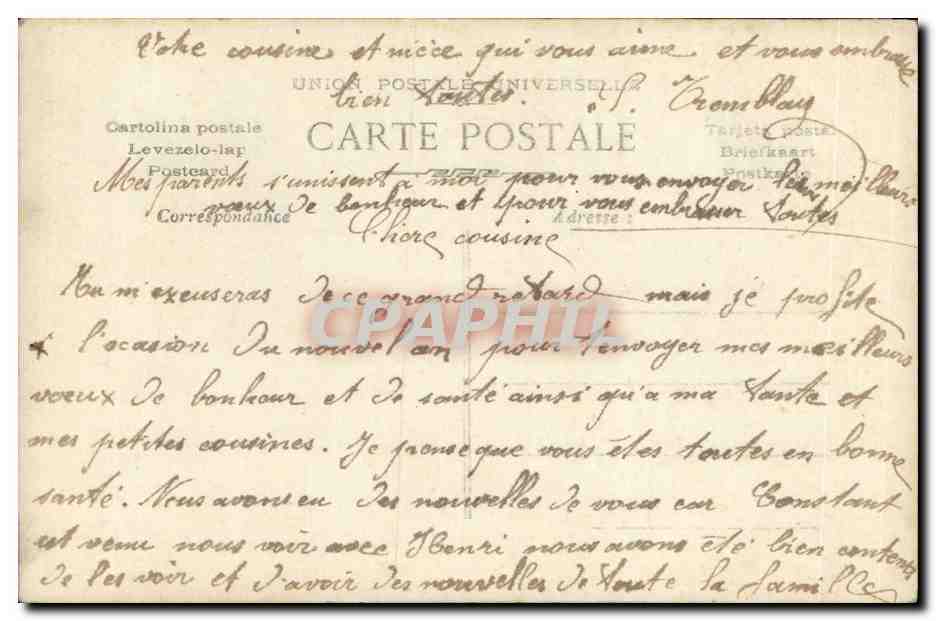 Votre cousine et nièce qui vous aime et vous embrasse
UNION POSTALE UNIVERSELLE
bien toutes. S. Tremblay
CARTE POSTALE
Cartolina postale
Levezelo-lap
Postcard
Tarjeta postal
Briefkaart
Postkarte
Mes parents s'unissent à moi pour vous envoyer leurs meilleurs
vœux de bonheur et pour vous embrasser toutes
Correspondance
Adresse :
Chère cousine
Tu m'excuseras de ce grand retard mais je profite
l'ocasion du nouvel an pour t'envoyer mes meilleurs
vœux de bonheur et de santé ainsi qu'a ma tante et
mes petites cousines. Je pense que vous êtes toutes en bonne
santé. Nous avons eu des nouvelles de vous car Constant
est venu nous voir avec Henri nous avons été bien contents
de les voir et d'avoir des nouvelles de toute la famille
CPAPHIL